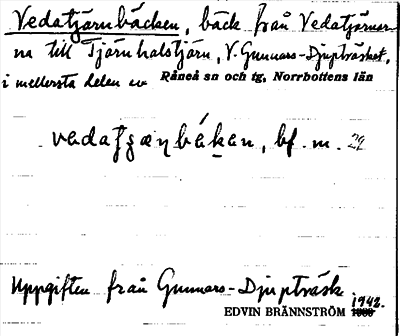 Vedatjärnbäcken, bäck från Vedatjärnar-
na till Tjärnhalstjärn, V. Gunnars-Djupträsket,
i mellersta delen av Råneå sn och tg, Norrbottens län
bf. m. 29
Uppgiften från Gunnars-Djupträsk
EDVIN BRÄNNSTRÖM 1942.